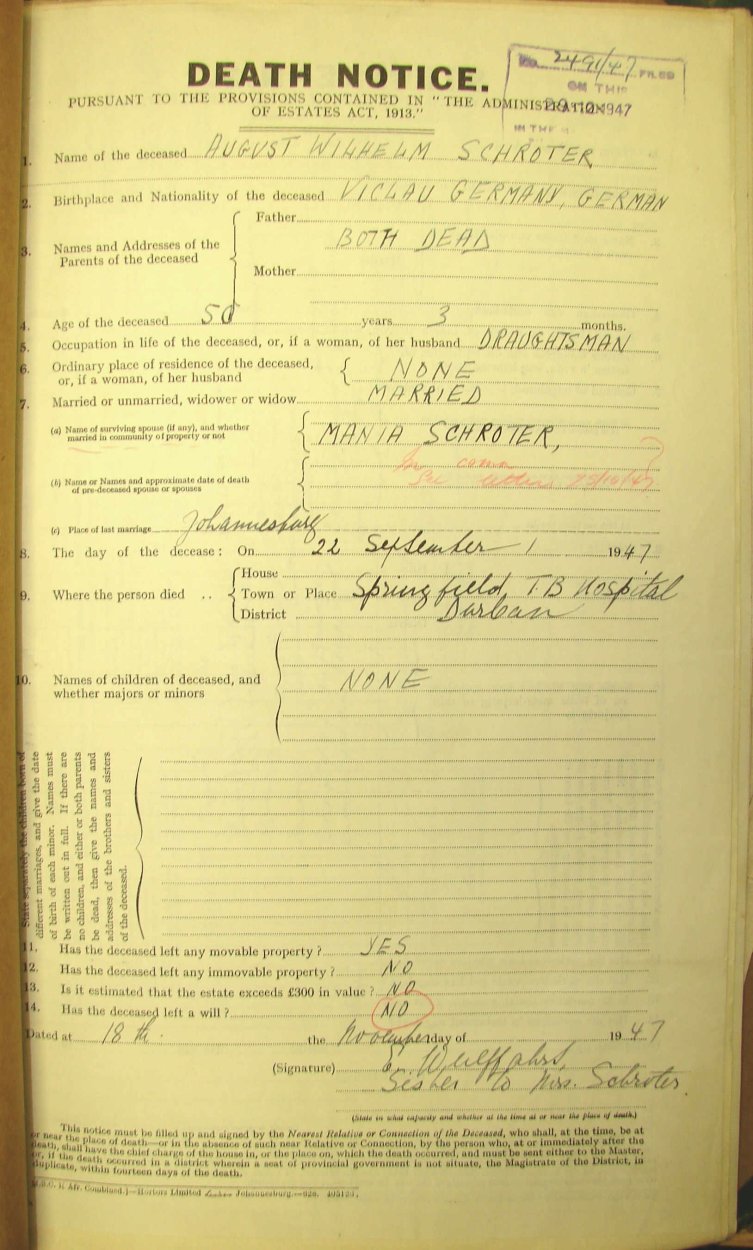 DEATH NOTICE.
No. 2491/47 FILED
ON THIS
PURSUANT TO THE PROVISIONS CONTAINED IN "THE ADMINISTRATION
OF ESTATES ACT, 1913."
1947
IN THE
1. Name of the deceased AUGUST WILHELM SCHROTER
2. Birthplace and Nationality of the deceased VICLAU GERMANY, GERMAN
Father
3. Names and Addresses of the Parents of the deceased BOTH DEAD
Mother
4. Age of the deceased 50 years 3 months.
5. Occupation in life of the deceased, or, if a woman, of her husband DRAUGHTSMAN
6. Ordinary place of residence of the deceased,
or, if a woman, of her husband NONE
7. Married or unmarried, widower or widow MARRIED
(a) Name of surviving spouse (if any), and whether
married in community of property or not MANIA SCHROTER,
In com
See
(b) Name or Names and approximate date of death
of pre-deceased spouse or spouses
(c) Place of last marriage Johannesburg
8. The day of the decease: On 22 September 1947
House
9. Where the person died .. Town or Place Springfield T.B Hospital
District Durban
10. Names of children of deceased, and
whether majors or minors NONE
State separately the children born of
different marriages, and give the date
of birth of each minor. Names must
be written out in full. If there are
no children, and either or both parents
be dead, then give the names and
addresses of the brothers and sisters
of the deceased.
11. Has the deceased left any movable property? YES
12. Has the deceased left any immovable property? NO
13. Is it estimated that the estate exceeds £300 in value? NO
14. Has the deceased left a will? NO
Dated at 18th the November day of 1947
(Signature)
Sister to Mrs. Schroter.
(State in what capacity and whether at the time at or near the place of death.)
This notice must be filled up and signed by the Nearest Relative or Connection of the Deceased, who shall, at the time, be at
or near the place of death—or in the absence of such near Relative or Connection, by the person who, at or immediately after the
death, shall have the chief charge of the house in, or the place on, which the death occurred, and must be sent either to the Master,
or, if the death occurred in a district wherein a seat of provincial government is not situate, the Magistrate of the District, in
duplicate, within fourteen days of the death.
Combined.]—Hortors Limited Johannesburg.